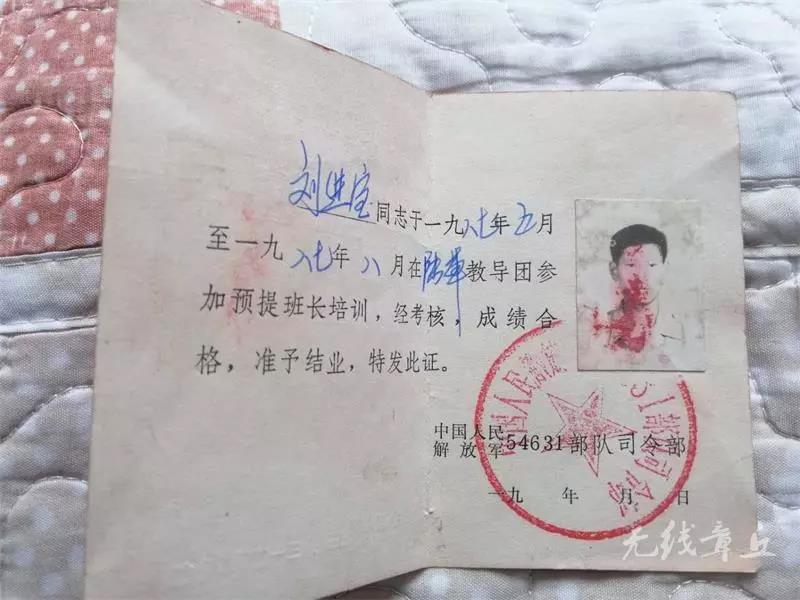 刘进宝同志于一九八七年五月
至一九八七年八月在陆军教导团参
加预提班长培训，经考核，成绩合
格，准予结业，特发此证。
中国人民
解放军54631部队司令部
一九 年 月 日
国人民解
部队司令部
无线章丘